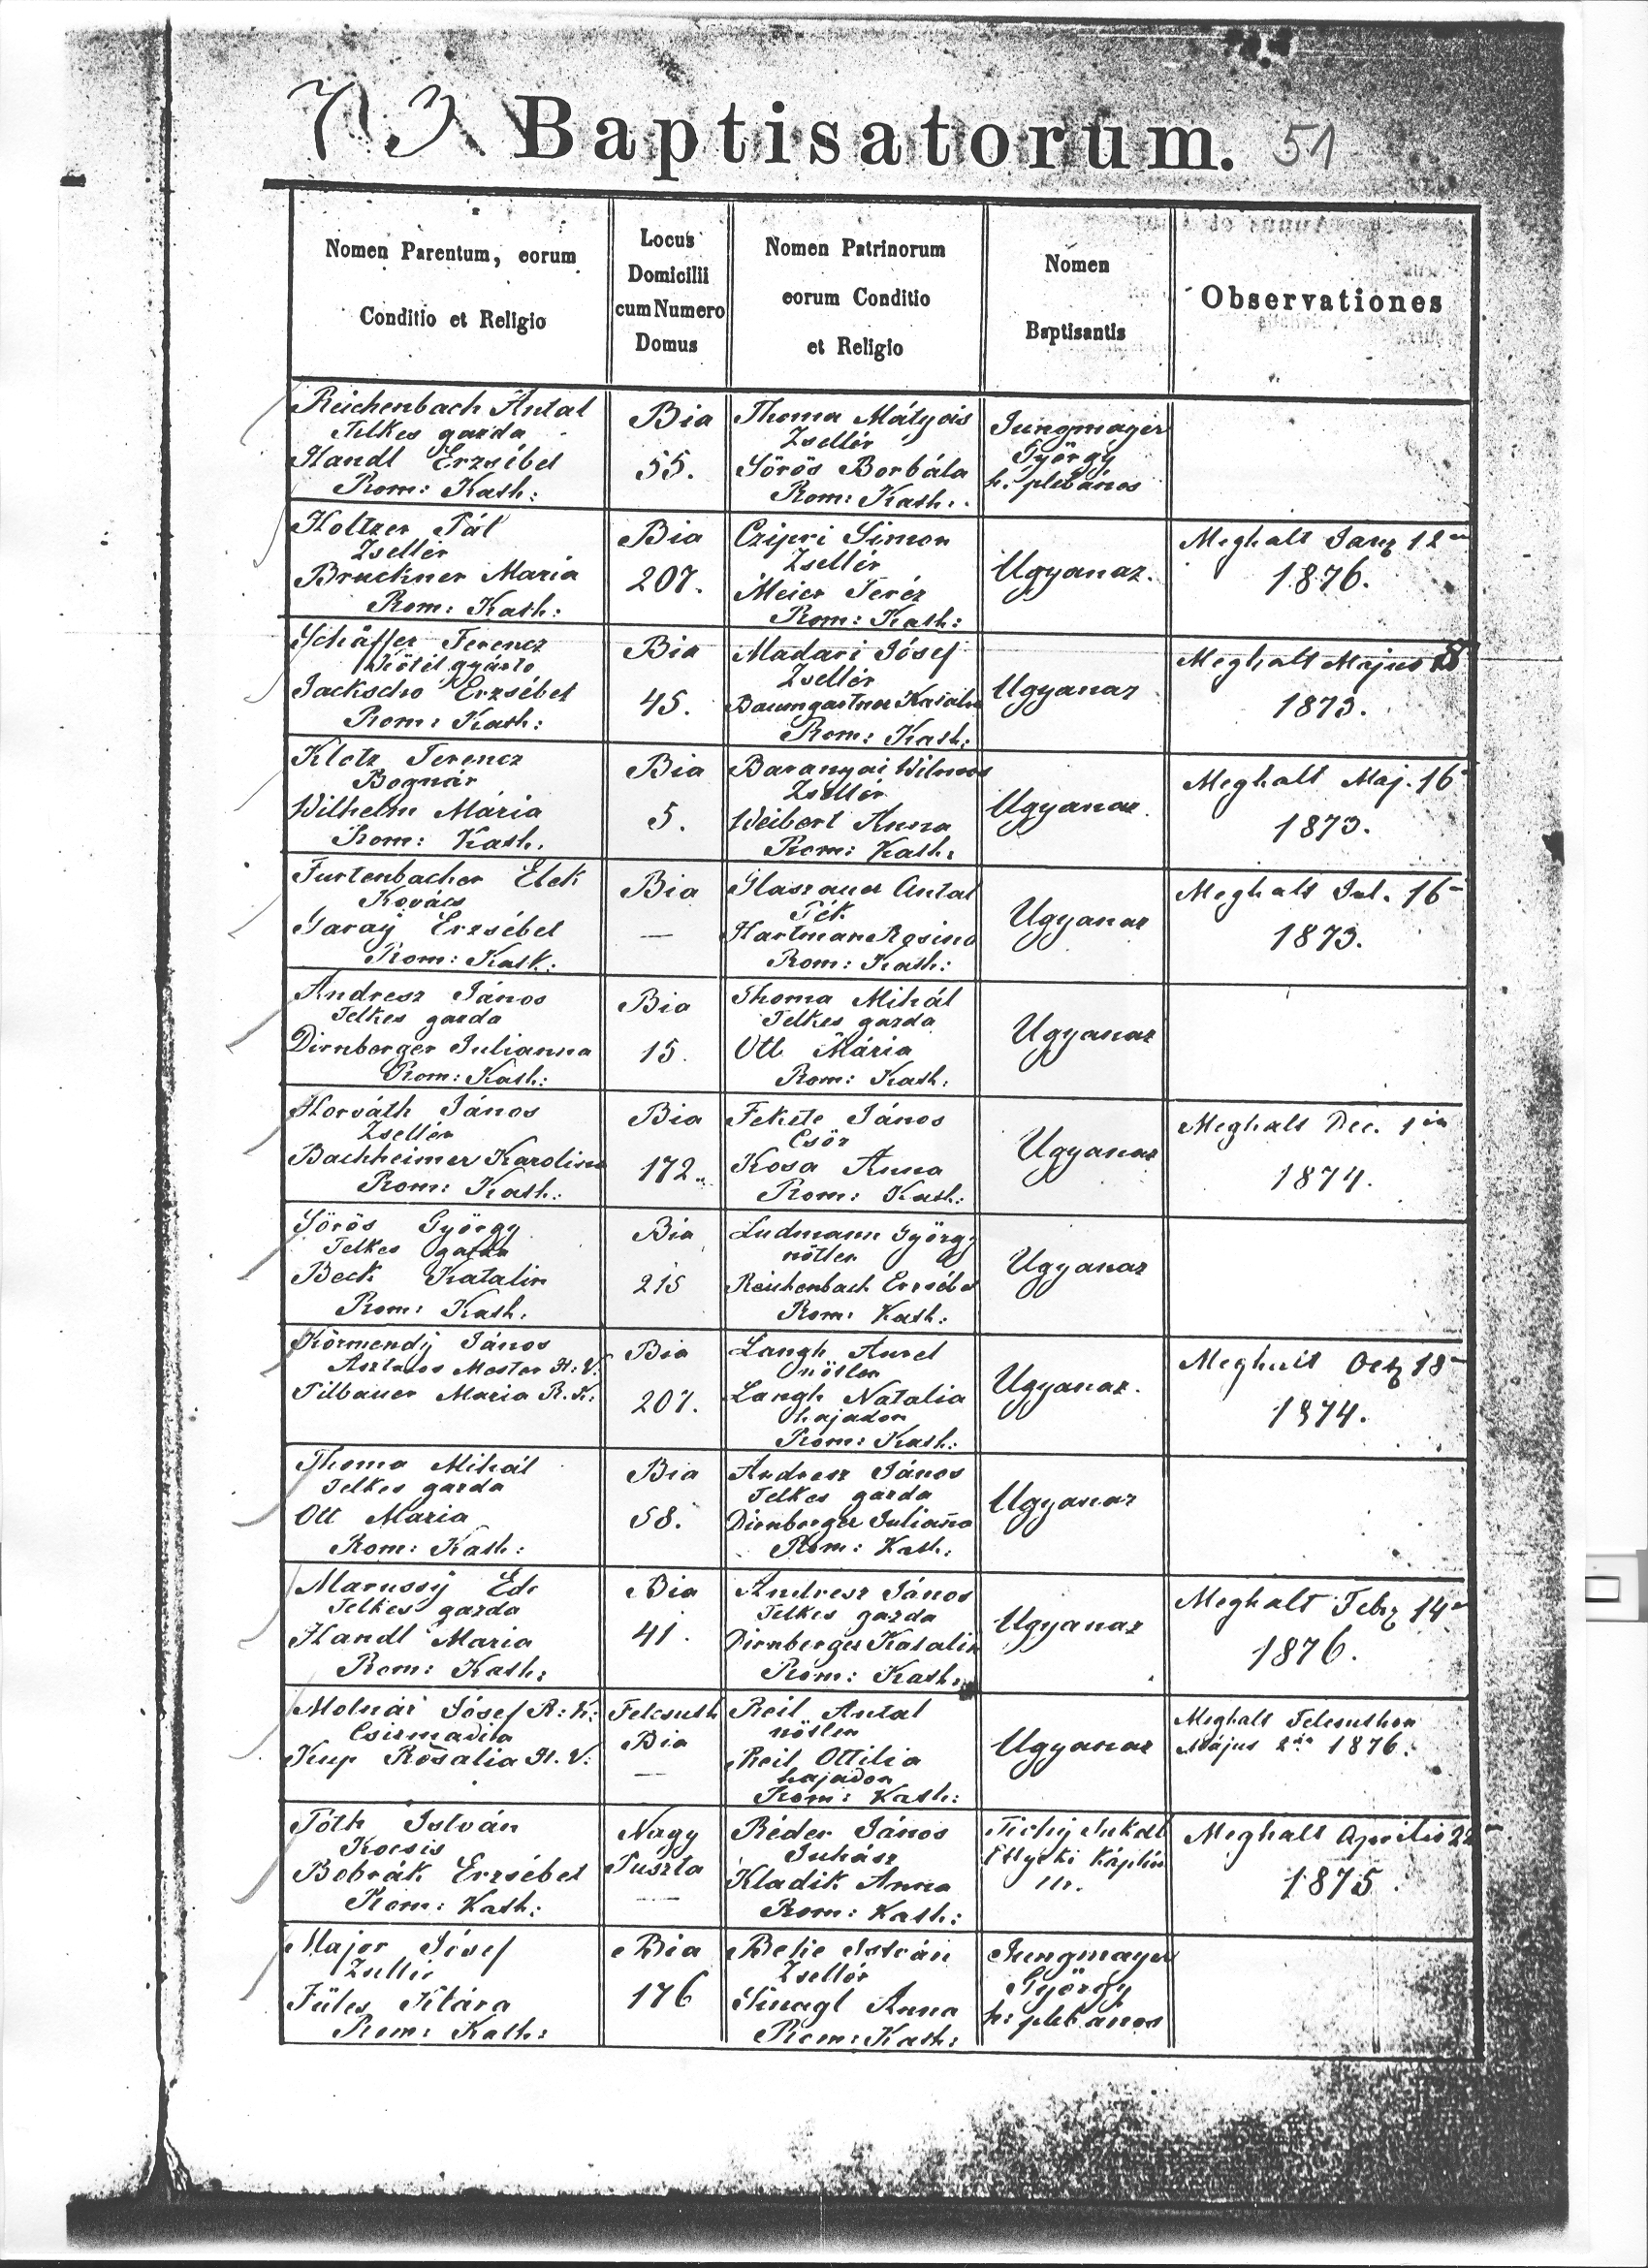 73 Baptisatorum. 51
Nomen Parentum, eorum
Conditio et Religio
Locus
Domicilii
cum Numero
Domus
Nomen Patrinorum
eorum Conditio
et Religio
Nomen
Baptisantis
Observationes
Reichenbach Antal
Telkes gazda
Handl Erzsébet
Rom: Kath:
Bia
55.
Thoma Mátyás
Zsellér
Sörös Borbála
Rom: Kath:
Jungmayer
György
h. plébános
Holtzer Pál
Zsellér
Bruckner Maria
Rom: Kath:
Bia
207.
Czipri Simon
Zsellér
Meier Teréz
Rom: Kath:
Ugyanaz.
Meghalt Janr 12én
1876.
Schäffer Ferencz
Kötélgyárto
Jackscho Erzsébet
Rom: Kath:
Bia
45.
Madari Jósef
Zsellér
Baumgartner Katalin
Rom: Kath:
Ugyanaz
Meghalt Majus
1873.
Klotz Ferencz
Bognár
Wilhelm Mária
Rom: Kath.
Bia
5.
Baranyai Vilmos
Zsellér
Weibert Anna
Rom: Kath:
Ugyanaz
Meghalt Maj. 16
1873.
Furtenbacher Elek
Kovács
Garay Erzsébet
Rom: Kath:
Bia
—
Glaszauer Antal
Pék
Hartman Rosina
Rom: Kath:
Ugyanaz
Meghalt Jul. 16
1873.
Andresz János
Telkes gazda
Dirnberger Julianna
Rom: Kath:
Bia
15.
Thoma Mihál
Telkes gazda
Ott Mária
Rom: Kath:
Ugyanaz
Horváth János
Zsellér
Bachheimer Karolina
Rom: Kath:
Bia
172.
Fekete János
Csőz
Kosa Anna
Rom: Kath:
Ugyanaz
Meghalt Dec. 1én
1874.
Sörös György
Telkes gazda
Beck Katalin
Rom: Kath.
Bia
215
Ludmann György
nőtlen
Reichenbach Erzsébet
Rom: Kath:
Ugyanaz
Körmendÿ János
Asztalos Mester H: V.
Tilbauer Maria R. K:
Bia
207.
Langh Aurel
nőtlen
Langh Natalia
hajadon
Rom: Kath:
Ugyanaz.
Meghalt Octr 18
1874.
Thoma Mihál
Telkes gazda
Ott Maria
Rom: Kath:
Bia
58.
Andresz János
Telkes gazda
Dirnberger Juliañna
Rom: Kath:
Ugyanaz
Marussÿ Ede
Telkes gazda
Handl Maria
Rom: Kath:
Bia
41.
Andresz János
Telkes gazda
Dirnberger Katalin
Rom: Kath:
Ugyanaz
Meghalt Febr 14én
1876.
Molnár Jósef R: K:
Csizmadia
Kup Rosalia H. V.
Felcsuth
Bia
—
Reil Antal
nőtlen
Reil Ottilia
hajadon
Rom: Kath:
Ugyanaz
Meghalt Felcsuthon
Május 2án 1876.
Tóth István
Kocsis
Bobrák Erzsébet
Rom: Kath:
Nagy
Puszta
—
Réder János
Juhász
Kladik Anna
Rom: Kath:
Káplán
Meghalt Aprilis 22
1875.
Major Jósef
Zsellér
Füles Klára
Rom: Kath:
Bia
176
István
Zsellér
Sinagl Anna
Rom: Kath:
Jungmayer
György
h: plébános